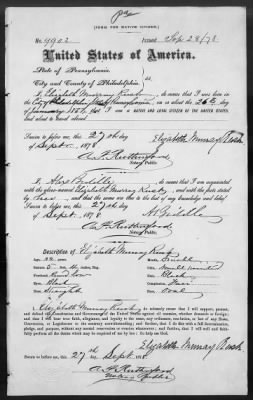 [FORM FOR NATIVE CITIZEN.]
No. 9902 Issued Sep 28/78
United States of America.
State of Pennsylvania.
City and County of Philadelphia, ss.
I, Elizabeth Murray Rush, do swear that I was born in
the City of Philadelphia, State Pennsylvania, on or about the 26th day of
that I am a NATIVE AND LOYAL CITIZEN OF THE UNITED STATES,
and about to travel abroad.
Sworn to before me, this 27th day
of Sept. 1878
Elizabeth Murray Rush
A. H. Rutherford
Notary Public.
I, do swear that I am acquainted
with the above-named Elizabeth Murray Rush, and with the facts stated
by her and that the same are true to the best of my knowledge and belief.
Sworn to before me, this 27th day
of Sept. 1878
A. H. Rutherford
Notary Public.
Description of Elizabeth Murray Rush
Age,
Mouth, Small
Stature, 5
Chin,
Forehead,
Hair, Black
Eyes, Black
Complexion, Fair
Nose, Straight
Face, Oval
I, Elizabeth Murray Rush, do solemnly swear that I will support, protect, and
defend the Constitution and Government of the United States against all enemies, whether domestic or foreign;
and that I will bear true faith, allegiance, and loyalty to the same, any ordinance, resolution, or law of any State,
Convention, or Legislature to the contrary notwithstanding; and further, that I do this with a full determination,
pledge, and purpose, without any mental reservation or evasion whatsoever; and further, that I will well and
faithfully perform all the duties which may be required of me by law. So help me God.
Elizabeth Murray Rush
Sworn to before me, this 27th Sept. 1878
A. H. Rutherford
Notary Public